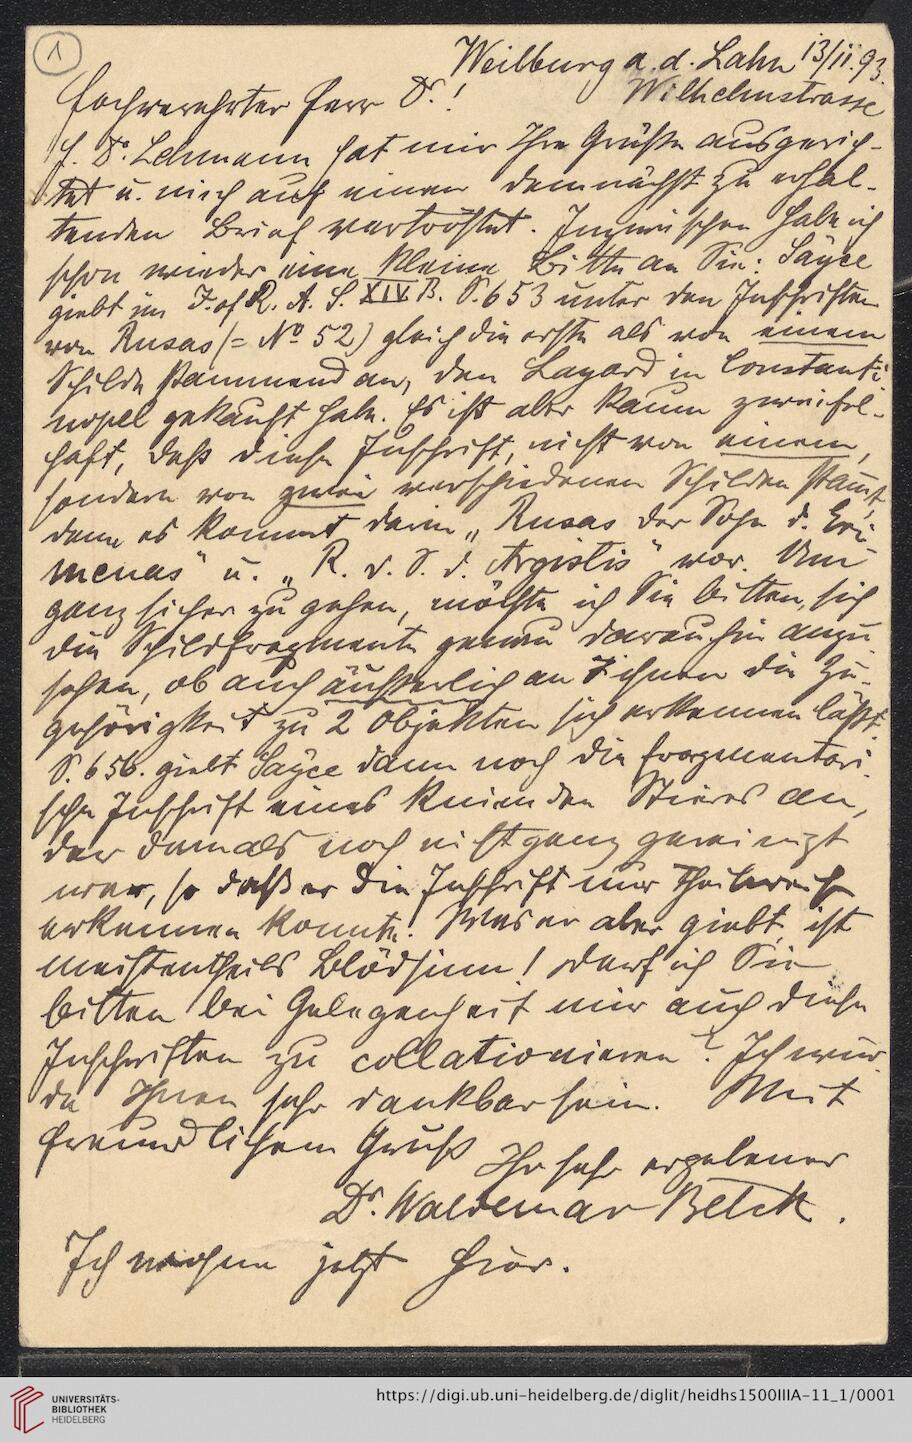 1
Weilburg a. d. Lahn 13/II. 93.
Wilhelmstrasse
Hochverehrter Herr Dr.!
H. Dr. Lehmann hat mir Ihre Grüße ausgerich-
tet u. mich auf einen demnächst zu erhal-
tenden Brief vertröstet. Inzwischen habe ich
schon wieder eine kleine Bitte an Sie: Sayce
giebt im J. of R. A. S. XIV B. S. 653 unter den Inschriften
von Rusas (= No 52) gleich die erste als von einem
Schilde stammend an, den Layard in Constanti-
nopel gekauft habe. Es ist aber kaum zweifel-
haft, daß diese Inschrift, nicht von einem,
sondern von zwei verschiedenen Schilden stamt,
denn es kommt darin „Rusas der Sohn d. Eri-
menas" u. „R. d. S. d. Argistis" vor. Um
ganz sicher zu gehen, möchte ich Sie bitten, sich
die Schildfragmente genau daraufhin anzu
sehen, ob auch äußerlich an ihnen die Zu-
gehörigkeit zu 2 Objekten sich erkennen läßt.
S. 656. giebt Sayce dann noch die fragmentari
sche Inschrift eines knienden Stieres an,
der damals noch nicht ganz gereinigt
war, so daß er die Inschrift nur theilweise
erkennen konnte. Was er aber giebt, ist
meistentheils Blödsinn! Darf ich Sie
bitten bei Gelegenheit mir auch diese
Inschriften zu collationieren? Ich wür
de Ihnen sehr dankbar sein. Mit
freundlichem Gruß
Ihr sehr ergebener
Dr. Waldemar Belck.
Ich wohne jetzt hier.
UNIVERSITÄTS-
BIBLIOTHEK
HEIDELBERG
https://digi.ub.uni-heidelberg.de/diglit/heidhs1500IIIA-11_1/0001